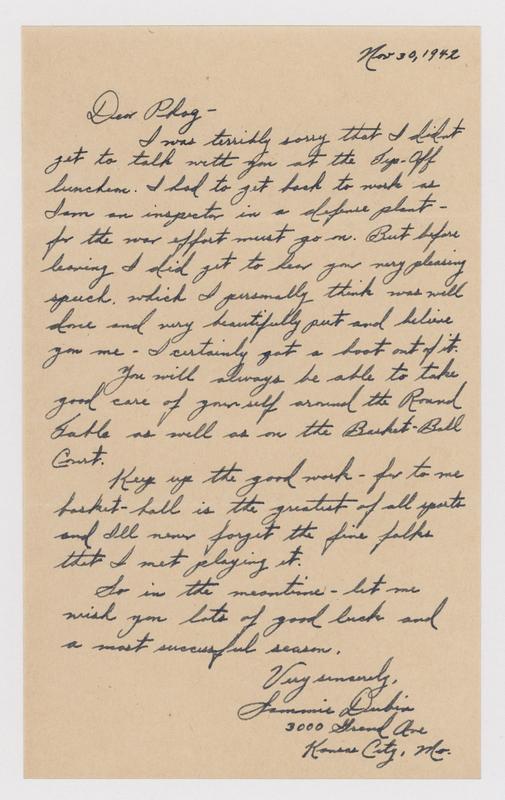 Nov 30, 1942
Dear Phog -
I was terribly sorry that I didn't
get to talk with you at the Tip-Off
luncheon. I had to get back to work as
I am an inspector in a defense plant -
for the war effort must go on. But before
leaving I did get to hear your very pleasing
speech, which I personally think was well
done and very beautifully put and believe
you me - I certainly got a boot out of it.
You will always be able to take
good care of yourself around the Round
Table as well as on the Basket-Ball
Court.
Keep up the good work - for to me
basket-ball is the greatest of all sports
and I'll never forget the fine folks
that I met playing it.
So in the meantime - let me
wish you lots of good luck and
a most successful season.
Very sincerely,
Sammie Dubin
3000 Grand Ave
Kansas City, Mo.